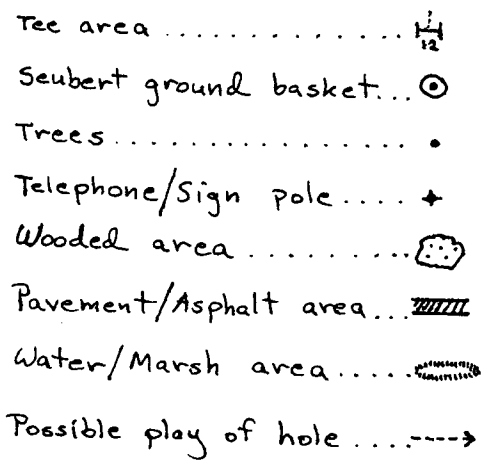 Tee area .............
12
Seubert ground basket...
Trees................
Telephone/Sign pole....
Wooded area .........
Pavement/Asphalt area...
Water/Marsh area.....
Possible play of hole ....